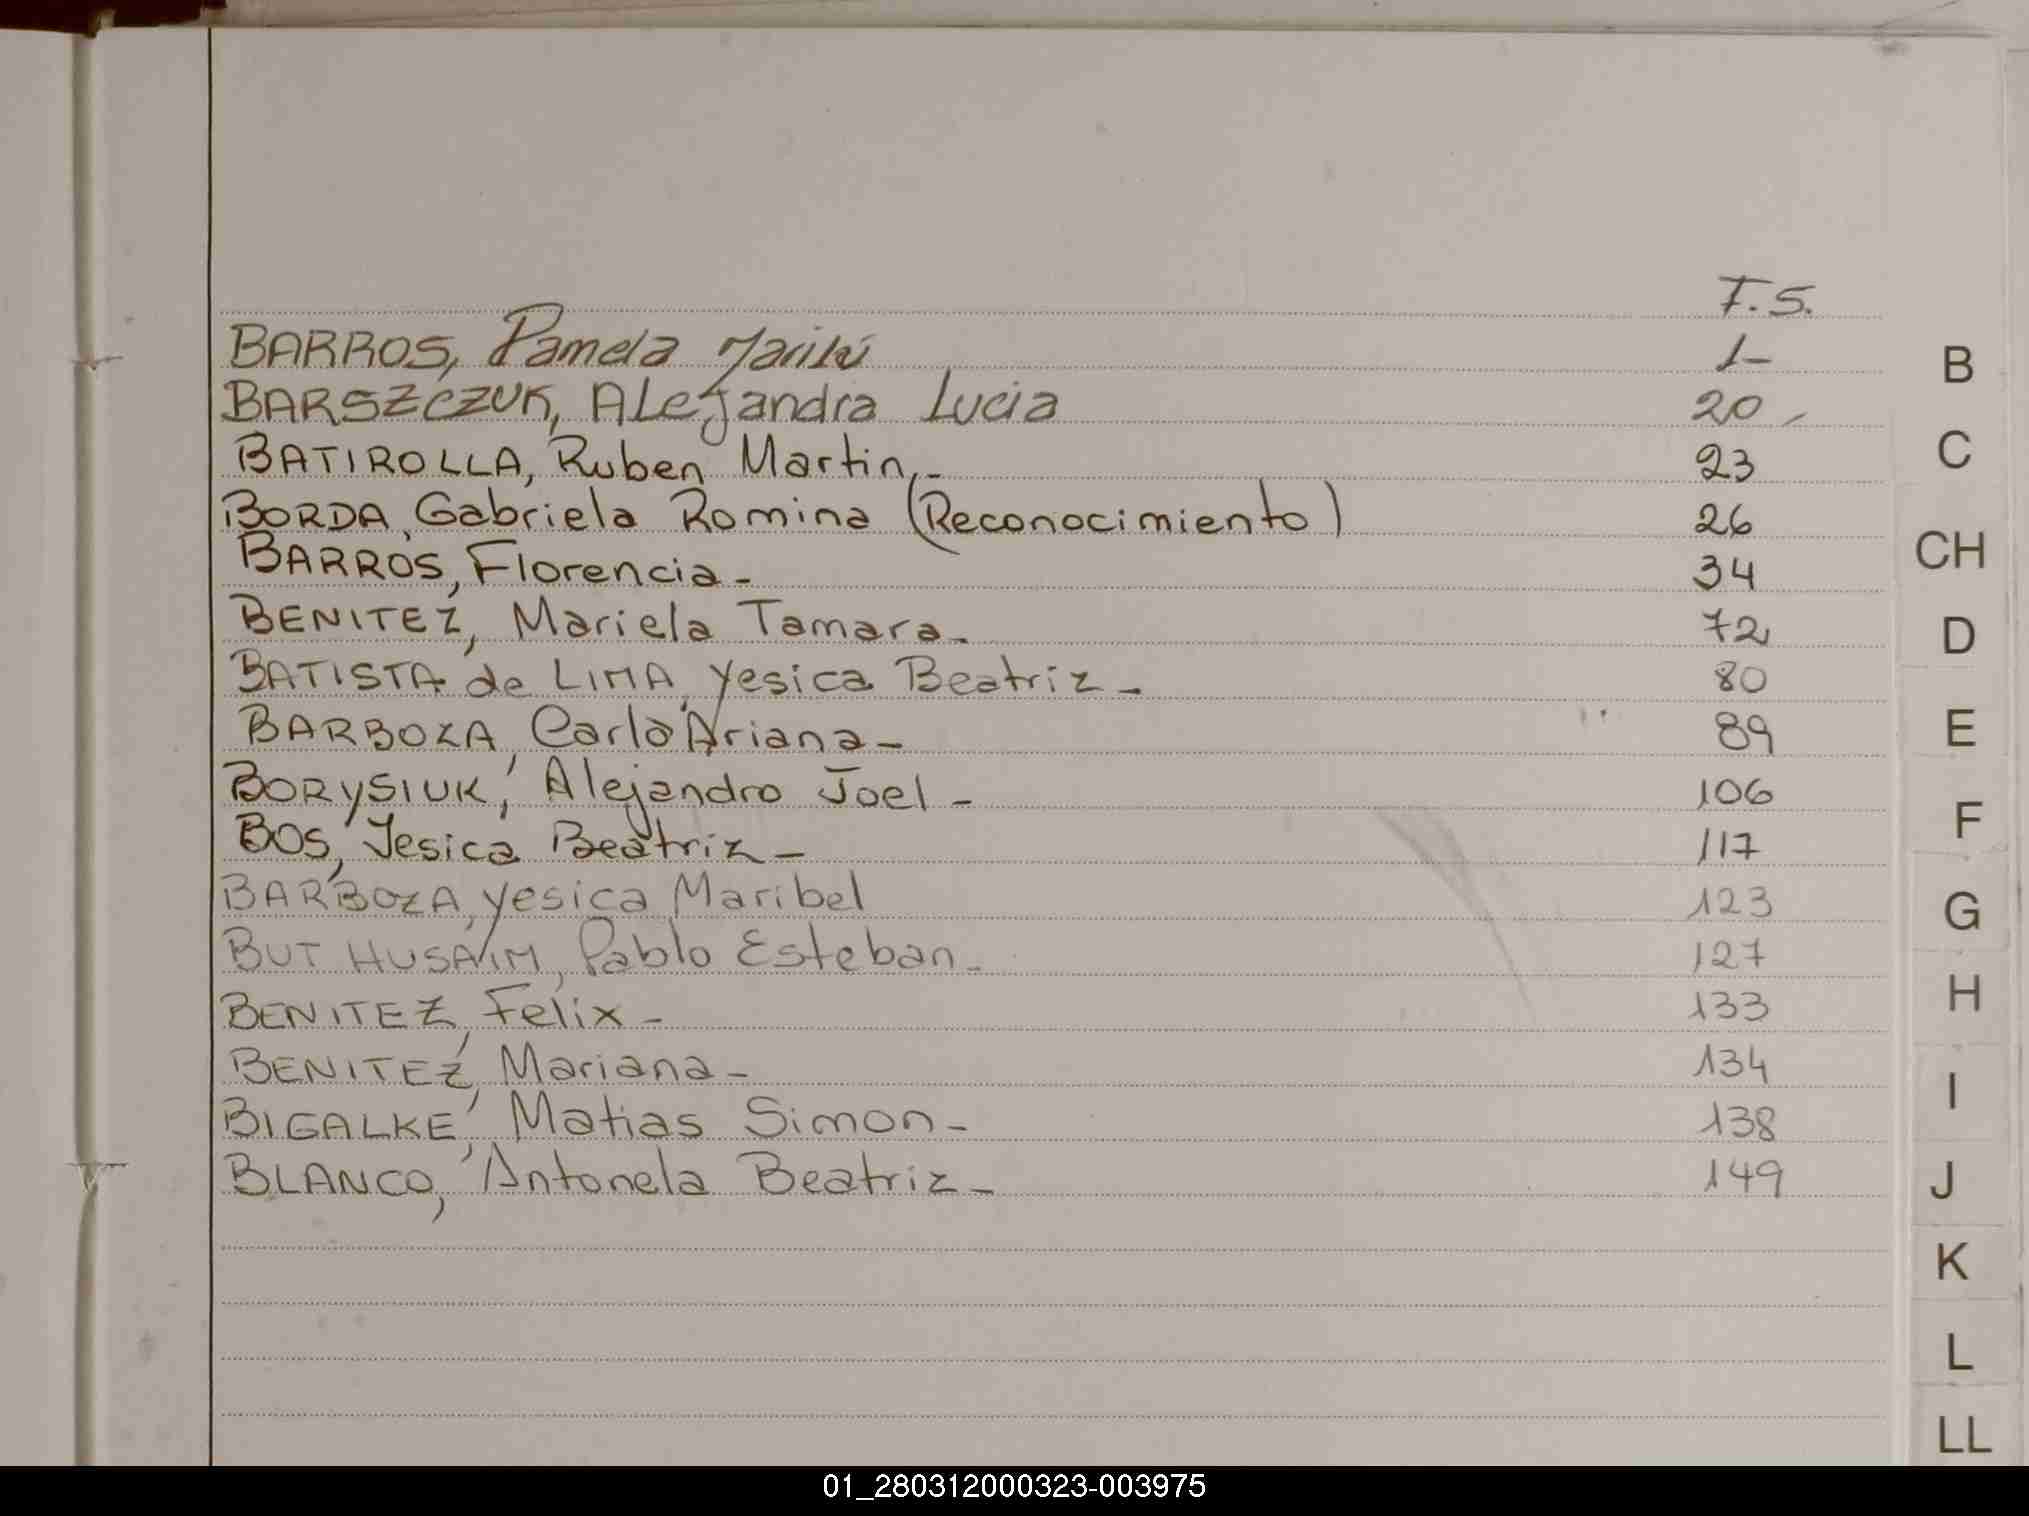 F.S.
BARROS, Pamela Marilú 1-
BARSZCZUK, Alejandra Lucia 20
BATIROLLA, Ruben Martin.- 23
BORDA, Gabriela Romina (Reconocimiento) 26
BARROS, Florencia- 34
BENITEZ, Mariela Tamara- 72
BATISTA de LIMA, Yesica Beatriz- 80
BARBOZA, Carla Ariana- 89
BORYSIUK, Alejandro Joel- 106
BOS, Jesica Beatriz- 117
BARBOZA, Yesica Maribel 123
BUT HUSAIM, Pablo Esteban- 127
BENITEZ, Felix- 133
BENITEZ, Mariana- 134
BIGALKE, Matias Simon- 138
BLANCO, Antonela Beatriz- 149
B
C
CH
D
E
F
G
H
I
J
K
L
LL
01_280312000323-003975